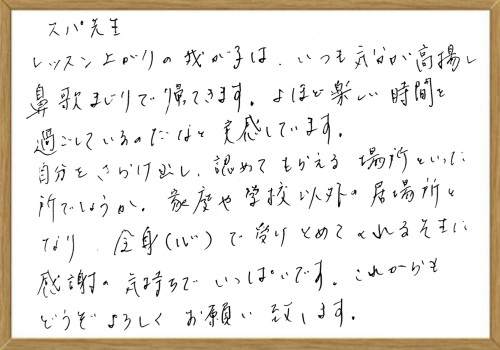 スパ先生
レッスン上がりの我が子は、いつも気分が高揚し
鼻歌まじりで帰ってきます。よほど楽しい時間を
過ごしているのだなと実感しています。
自分をさらけ出し、認めてもらえる場所といった
所でしょうか。家庭や学校以外の居場所と
なり、全身(心)で受けとめてくれる先生に
感謝の気持ちでいっぱいです。これからも
どうぞよろしくお願い致します。